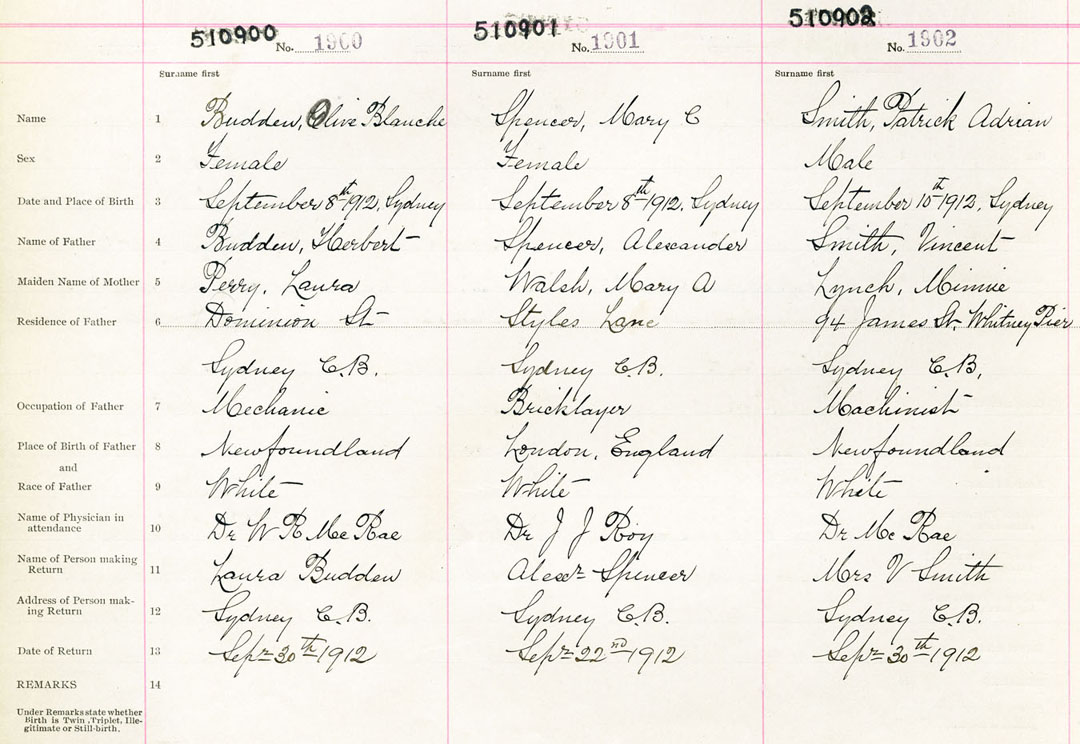 510900 510901 510902
No. 1900 No. 1901 No. 1902
Surname first Surname first Surname first
Name 1 Budden, Olive Blanche Spencer, Mary C Smith, Patrick Adrian
Sex 2 Female Female Male
Date and Place of Birth 3 September 8th 1912, Sydney September 8th 1912, Sydney September 10th 1912, Sydney
Name of Father 4 Budden, Herbert Spencer, Alexander Smith, Vincent
Maiden Name of Mother 5 Perry, Laura Walsh, Mary A Lynch, Minnie
Residence of Father 6 Dominion St Styles Lane 94 James St. Whitney Pier
Sydney C.B. Sydney C.B. Sydney C.B.
Occupation of Father 7 Mechanic Bricklayer Machinist
Place of Birth of Father 8 Newfoundland London, England Newfoundland
and
Race of Father 9 White White White
Name of Physician in
attendance 10 Dr W R Mc Rae Dr J J Roy Dr Mc Rae
Name of Person making
Return 11 Laura Budden Alexr Spencer Mrs V Smith
Address of Person mak-
ing Return 12 Sydney C.B. Sydney C.B. Sydney C.B.
Date of Return 13 Sepr 30th 1912 Sepr 22nd 1912 Sepr 30th 1912
REMARKS 14
Under Remarks state whether
Birth is Twin, Triplet, Ille-
gitimate or Still-birth.